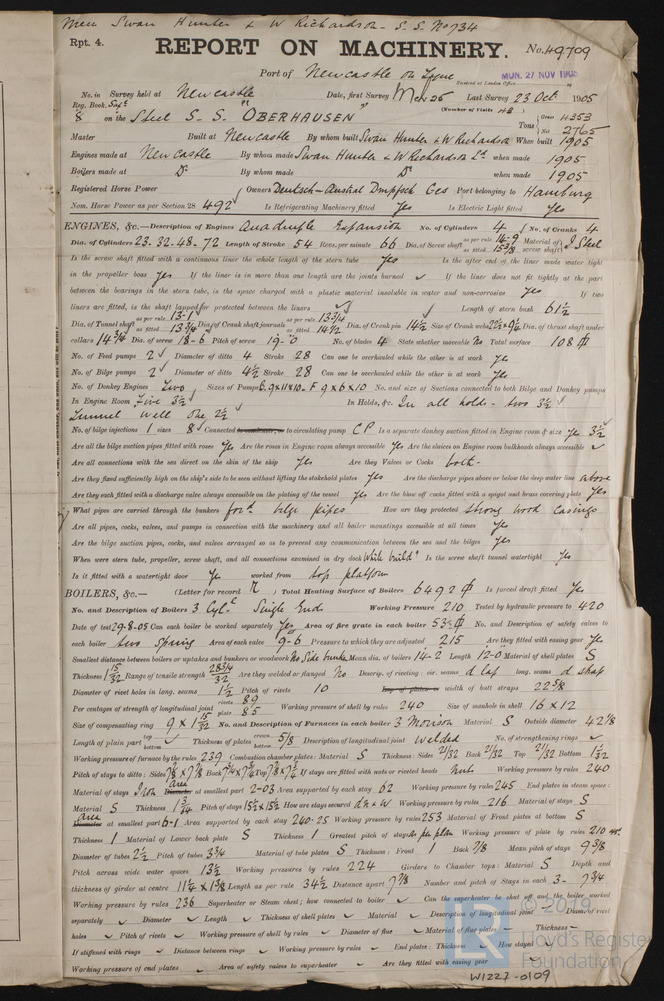 Mess Swan Hunter & W Richardson - S.S. No 734
Rpt. 4. REPORT ON MACHINERY. No. 49709
Port of Newcastle on Tyne MON. 27 NOV 1905
Received at London Office
No. in Survey held at Newcastle Date, first Survey Mch 25 Last Survey 23 Oct 1905
Reg. Book. (Number of Visits 42)
8 on the Steel S. S. "OBERHAUSEN" Tons Gross 4353 Net 2765
Master Built at Newcastle By whom built Swan Hunter & W Richardson When built 1905
Engines made at Newcastle By whom made Swan Hunter & W Richardson Ld when made 1905
Boilers made at Do By whom made Do when made 1905
Registered Horse Power Owners Deutsch-Austral Dmpfsch Ges Port belonging to Hamburg
Nom. Horse Power as per Section 28 492 Is Refrigerating Machinery fitted Yes Is Electric Light fitted Yes
ENGINES, &c.—Description of Engines Quadruple Expansion No. of Cylinders 4 No. of Cranks 4
Dia. of Cylinders 23. 32-48-72 Length of Stroke 54 Revs. per minute 66 Dia. of Screw shaft as per rule 14-9 as fitted 15 3/8 Material of screw shaft I Steel
Is the screw shaft fitted with a continuous liner the whole length of the stern tube Yes Is the after end of the liner made water tight
in the propeller boss Yes If the liner is in more than one length are the joints burned ✓ If the liner does not fit tightly at the part
between the bearings in the stern tube, is the space charged with a plastic material insoluble in water and non-corrosive Yes If two
liners are fitted, is the shaft lapped or protected between the liners ✓ Length of stern bush 61 1/2
Dia. of Tunnel shaft as per rule 13-1 as fitted 13 3/16 Dia. of Crank shaft journals as per rule 13-3/4 as fitted 14 1/2 Dia. of Crank pin 14 1/2 Size of Crank webs 20 1/2 x 9 1/2 Dia. of thrust shaft under
collars 14 3/16 Dia. of screw 18-6 Pitch of screw 19-0 No. of blades 4 State whether moveable No Total surface 108 ф
No. of Feed pumps 2 Diameter of ditto 4 Stroke 28 Can one be overhauled while the other is at work Yes
No. of Bilge pumps 2 Diameter of ditto 4 1/2 Stroke 28 Can one be overhauled while the other is at work Yes
No. of Donkey Engines Two Sizes of Pumps B. 9x11x10 - F 9x6x10 No. and size of Suctions connected to both Bilge and Donkey pumps
In Engine Room Five 3 1/2 In Holds, &c. In all holds - two 3 1/2
Tunnel well one 2 1/2
No. of bilge injections 1 sizes 8 Connected to condenser, or to circulating pump CP Is a separate donkey suction fitted in Engine room & size Yes 3 1/2
Are all the bilge suction pipes fitted with roses Yes Are the roses in Engine room always accessible Yes Are the sluices on Engine room bulkheads always accessible ✓
Are all connections with the sea direct on the skin of the ship Yes Are they Valves or Cocks both -
Are they fixed sufficiently high on the ship's side to be seen without lifting the stokehold plates Yes Are the discharge pipes above or below the deep water line above
Are they each fitted with a discharge valve always accessible on the plating of the vessel Yes Are the blow off cocks fitted with a spigot and brass covering plate Yes
What pipes are carried through the bunkers forwd bilge pipes How are they protected strong wood casings
Are all pipes, cocks, valves, and pumps in connection with the machinery and all boiler mountings accessible at all times Yes
Are the bilge suction pipes, cocks, and valves arranged so as to prevent any communication between the sea and the bilges Yes
When were stern tube, propeller, screw shaft, and all connections examined in dry dock While buildg Is the screw shaft tunnel watertight Yes
Is it fitted with a watertight door Yes worked from top platform
BOILERS, &c.— (Letter for record R) Total Heating Surface of Boilers 6492 ф Is forced draft fitted Yes
No. and Description of Boilers 3 Cyl. Single Ends Working Pressure 210 Tested by hydraulic pressure to 420
Date of test 29-8-05 Can each boiler be worked separately Yes Area of fire grate in each boiler 53 ф No. and Description of safety valves to
each boiler two Spring Area of each valve 9-6 Pressure to which they are adjusted 215 Are they fitted with easing gear Yes
Smallest distance between boilers or uptakes and bunkers or woodwork No Side bunker Mean dia. of boilers 14-2 Length 12-0 Material of shell plates S
Thickness 1 15/32 Range of tensile strength 28 3/4 / 32 Are they welded or flanged No Descrip. of riveting: cir. seams d lap long. seams d strap
Diameter of rivet holes in long. seams 1 1/2 Pitch of rivets 10 Lap of plates or width of butt straps 22 5/8
Per centages of strength of longitudinal joint rivets 89 plate 85 Working pressure of shell by rules 240 Size of manhole in shell 16 x 12
Size of compensating ring 9 x 1 15/32 No. and Description of Furnaces in each boiler 3 Morison Material S Outside diameter 42 7/8
Length of plain part top bottom Thickness of plates crown bottom 5/8 Description of longitudinal joint welded No. of strengthening rings ✓
Working pressure of furnace by the rules 239 Combustion chamber plates: Material S Thickness: Sides 21/32 Back 21/32 Top 21/32 Bottom 1 1/32
Pitch of stays to ditto: Sides 7 7/8 x 7 7/8 Back 7 1/4 x 7 1/2 Top 7 7/8 x 7 1/2 If stays are fitted with nuts or riveted heads Nuts Working pressure by rules 240
Material of stays Iron area Diameter at smallest part 2-03 Area supported by each stay 62 Working pressure by rules 245 End plates in steam space:
Material S Thickness 1 3/4 Pitch of stays 15 1/2 x 15 1/2 How are stays secured dn & w Working pressure by rules 216 Material of stays S
area Diameter at smallest part 6-1 Area supported by each stay 240.25 Working pressure by rules 253 Material of Front plates at bottom S
Thickness 1 Material of Lower back plate S Thickness 1 Greatest pitch of stays as per plan Working pressure of plate by rules 210
Diameter of tubes 2 1/2 Pitch of tubes 3 3/4 Material of tube plates S Thickness: Front 1 Back 7/8 Mean pitch of stays 9 3/8
Pitch across wide water spaces 13 1/2 Working pressures by rules 224 Girders to Chamber tops: Material S Depth and
thickness of girder at centre 11 1/4 x 1 3/8 Length as per rule 34 1/2 Distance apart 7 7/8 Number and pitch of Stays in each 3 - 7 3/4
Working pressure by rules 236 Superheater or Steam chest; how connected to boiler ✓ Can the superheater be shut off and the boiler worked
separately ✓ Diameter ✓ Length ✓ Thickness of shell plates ✓ Material ✓ Description of longitudinal joint ✓ Diam. of rivet
holes ✓ Pitch of rivets ✓ Working pressure of shell by rules ✓ Diameter of flue ✓ Material of flue plates ✓ Thickness -
If stiffened with rings ✓ Distance between rings ✓ Working pressure by rules ✓ End plates: Thickness ✓ How stayed
Working pressure of end plates ✓ Area of safety valves to superheater ✓ Are they fitted with easing gear
© 2019
LR
Lloyd's Register
Foundation
W1227-0109